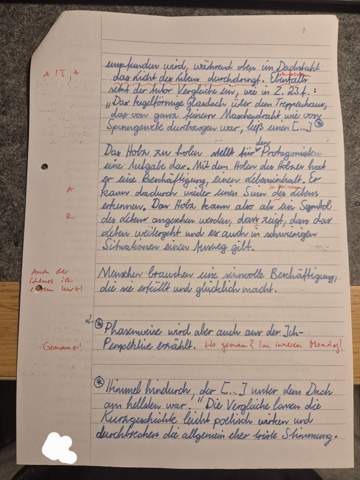 empfunden wird, während oben im Dachstuhl
A
A
das Licht des Lebens durchdringt. Ebenfalls
setzt der Autor Vergleiche ein, wie in Z. 23f.:
"Das kegelförmige Glasdach über dem Treppenhaus,
das von ganz feinem Maschendraht wie von
Sprungnetz durchzogen war, ließ einen [...]
den
Das Holz zu holen stellt für Protagonisten
eine Aufgabe dar. Mit dem Holen des Holzes hat
er eine Beschäftigung, einen Lebensinhalt. Er
A
kann dadurch wieder einen Sinn des Lebens
erkennen. Das Holz kann also als ein Symbol
R
des Lebens angesehen werden, das zeigt, dass das
Leben weitergeht und es auch in schwierigen
Situationen einen Ausweg gibt.
Menschen brauchen eine sinnvolle Beschäftigung,
die sie erfüllt und glücklich macht.
2
Phasenweise wird aber auch aus der Ich-
Genauer!
Perspektive erzählt. Wo genau? Im inneren Monolog!
Himmel hindurch, der [...] unter dem Dach
am hellsten war." Die Vergleiche lassen die
Kurzgeschichte leicht poetisch wirken und
durchbrechen die allgemein eher triste Stimmung.